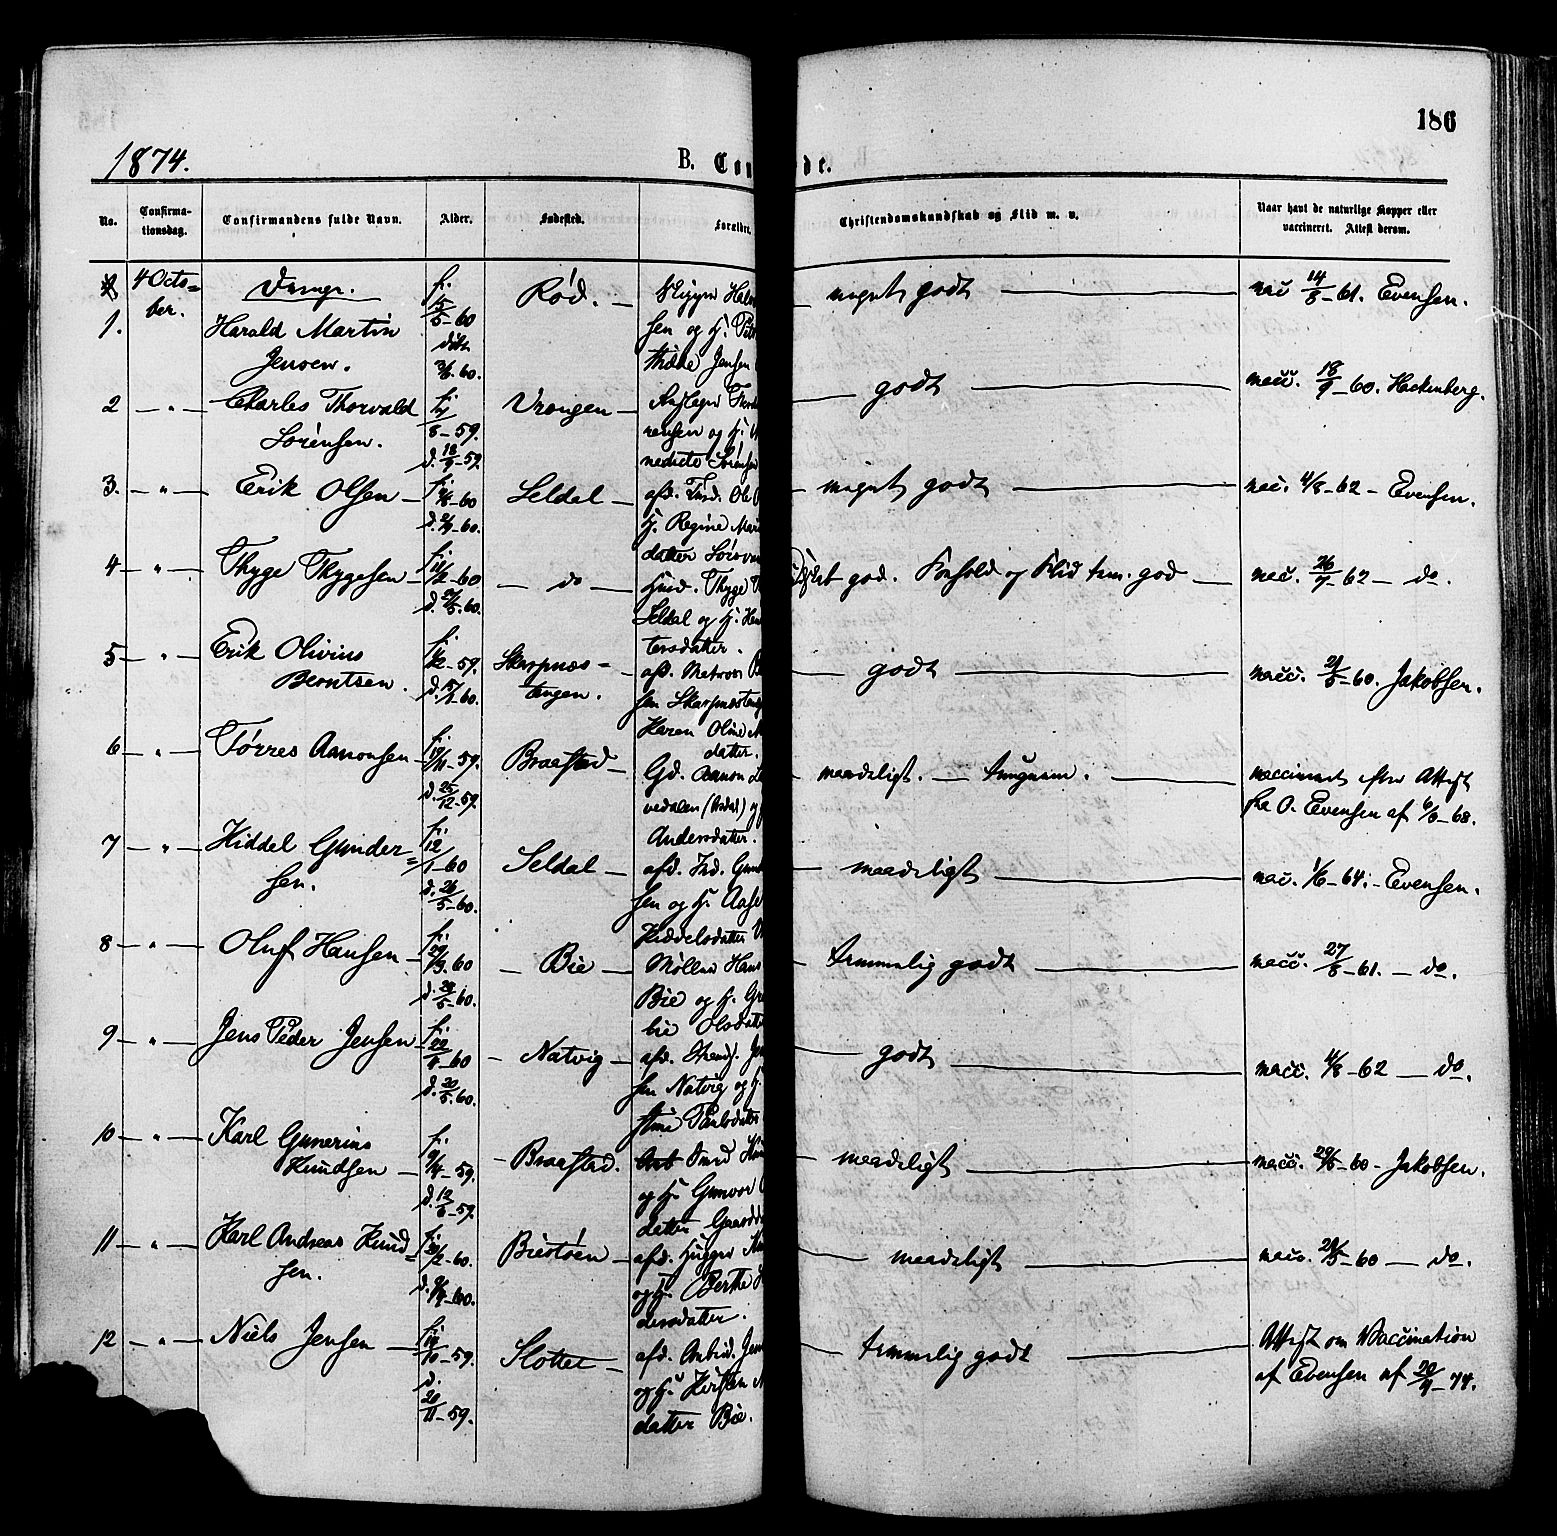 186
1874.
B. Con
de.
No.
Confirma-
tionsdag.
Confirmandens fulde Navn.
Alder.
Fødested.
Forældre
Christendomskundskab og Flid m. v.
Naar havt de naturlige Kopper eller
vaccineret. Attest derom.
4 Octo=
ber.
Drenge.
1.
Harald Martin
Jensen.
f.
15/5-60
døbt
3/6.60.
Rød. —
sen og H.
thine Jensen
meget godt
vac 14/8-61. Evensen.
2 — " —
Charles Thorvald
Sørensen.
f.
8-59.
d. 18/9-59.
Vrengen —
rensen og H.
nedicte Sørensen
godt
vacc. 18/9-60. Hackenberg.
3. — " —
Erik Olsen —
f.
-60
d. -60.
Seldal —
afd. Ole
H. Regine Mari
datter
meget godt
vac. 4/8-62 - Evensen.
4 — " —
Thyge Thygesen —
f.
11/2-60
d. -60.
— do —
Husm. Thyge
Seldal og H. Hen
tersdatter.
god. Forhold og Flid tem. god
vac. 26/7-62 — do.
5 — " —
Erik Olivius
Berntsen.
f.
-59.
d. -60.
Skarpnæs-
tangen.
afd. Matros B
sen Skarpnæstang
Karen Oline
datter.
godt
vacc. 21/5-60. Jakobsen.
6 — " —
Tørres Aanonsen —
f.
19/11-59.
d. 25/12-59.
Braastad —
Gd. Aanon
vedalen og
Andersdatter.
maadeligt. — tungnem.
vaccineret efter Attest
fra O. Evensen af 6/8-68.
7 — " —
Kiddel Gunder=
sen.
f.
12/1-60
d. 26/5-60.
Seldal —
afd. Ind. Gun
sen og H. Aase
Kiddelsdatter
maadeligt
vac. 1/6-64.- Evensen.
8 — " —
Oluf Hansen —
f.
29/3.60
d. 28/5-60.
— Bie —
Møller Hans
Bie og H. Gr
bie Olsdatter
temmelig godt
vacc. 27/8-61. — do.
9 — " —
Jens Peder Jensen —
f.
-60
d. 20/5.60.
— Natvig —
afd. Jen
sen Natvig og H.
stine Paulsdatter
godt
vacc. 4/8-62 — do.
10 — " —
Karl Gunerius
Knudsen —
f.
9/4-59.
d. 12/6-59.
— Braastad.
og H. Gunvor
datter
maadeligt
vacc. 29/5-60 - Jakobsen.
11 — " —
Karl Andreas Knud=
sen.
f.
-60.
d. -60.
Biestøen —
afd.
og H. Berthe
dersdatter.
maadeligt
vacc. 29/5-60 — do.
12 — " —
Niels Jensen —
f.
19/10-59.
d.
20/11-59.
Slottet —
afd. Arbid. Jen
og H. Kirsten
datter Bie.
temmelig godt
Attest om Vaccination
af Evensen af 20/9-74.